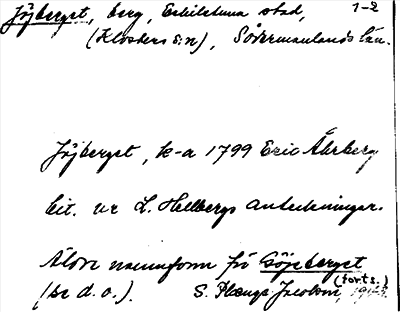 Jöjberget, berg, Eskilstuna stad, 1-2
(Klosters s:n), Södermanlands län.
Jöjberget, k-a 1799 Eric Åhrberg
cit. ur L. Hellbergs anteckningar.
Äldre namnform för Göjeberget
(se d.o.). S. Plænge Jacobson, (forts.)